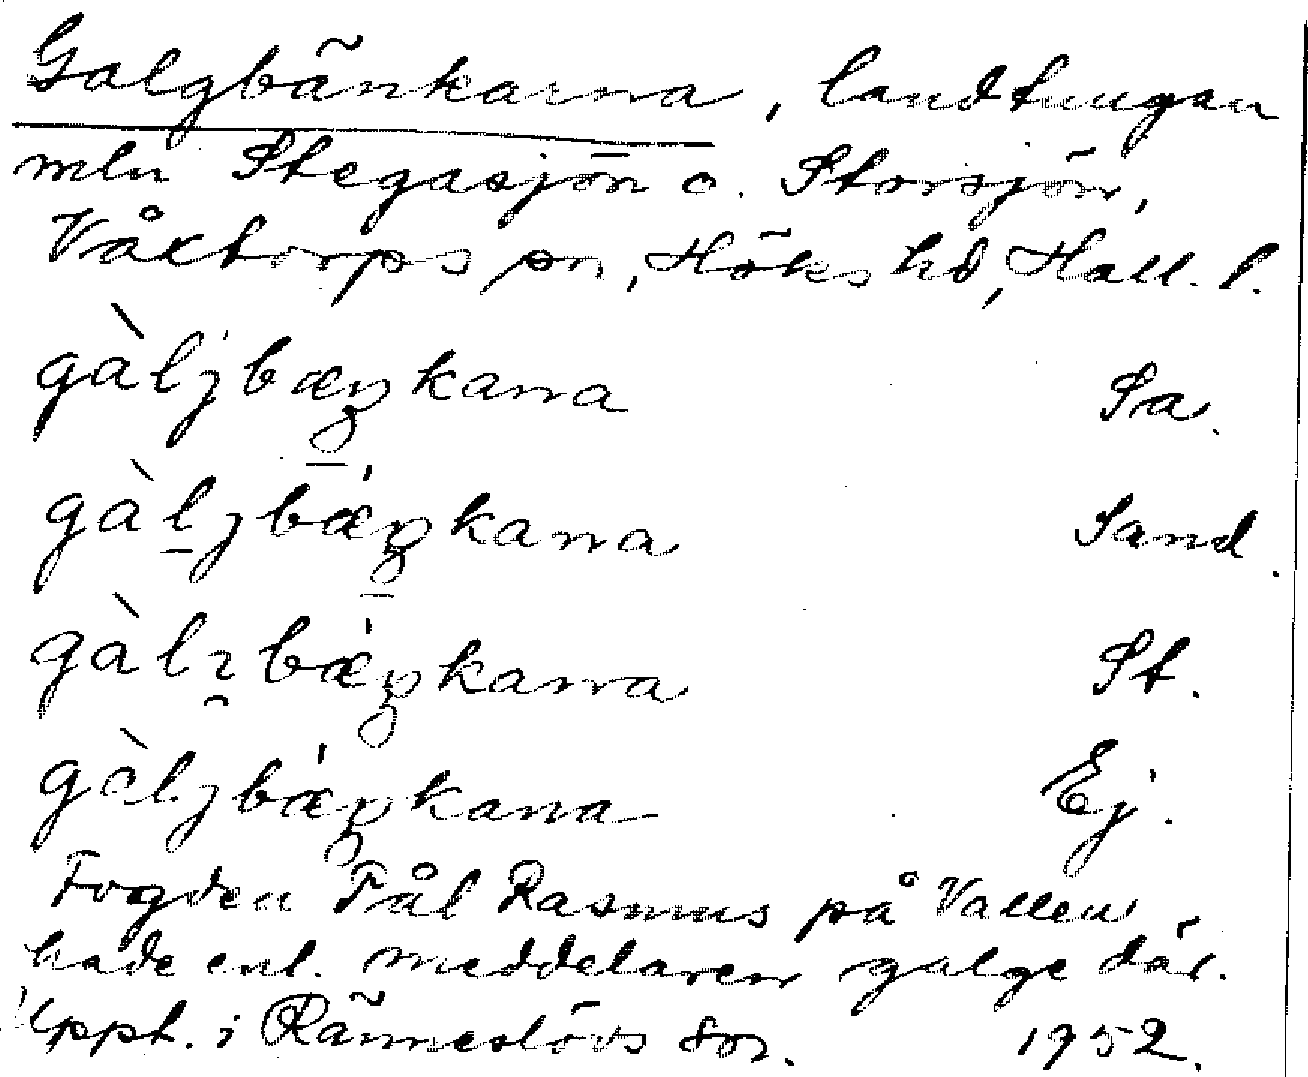 Galgbänkarna, landtungan
mln Stegasjön o. Storsjön,
Våxtorps sn, Höks hd, Hall. l.
gàljbæŋkana Sa.
gàljbǽŋkana Sand.
gàlɿbǽŋkana St.
gàljbǽŋkana Ej.
Fogden Pål Rasmus på Vallen
hade enl. meddelaren galge där.
Uppt. i Ränneslövs sn. 1952.